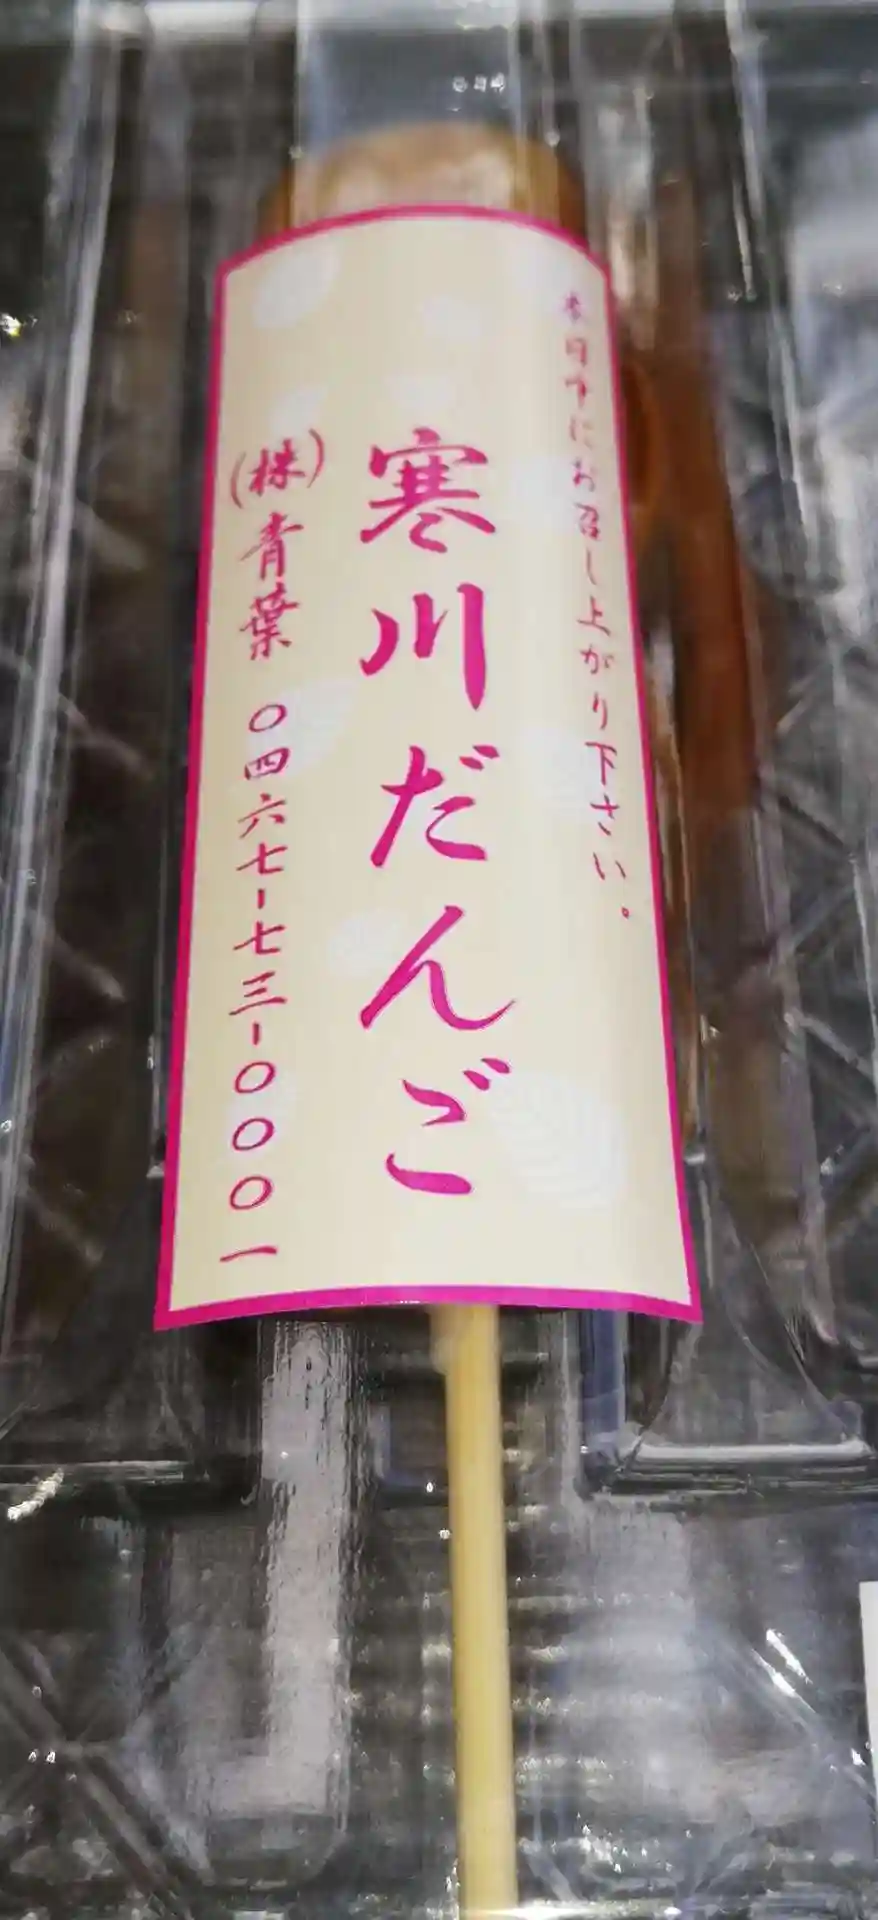 本日中にお召し上がり下さい。
寒川だんご
(株)青葉 〇四六七-七三-〇〇〇一